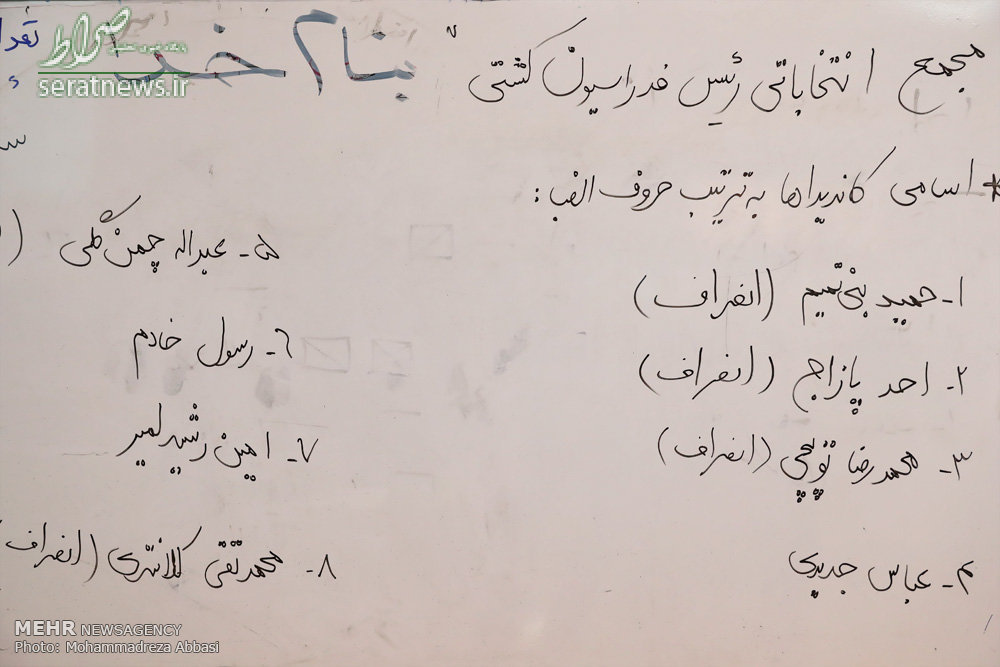 بنام خدا
مجمع انتخاباتی رئیس فدراسیون کشتی
* اسامی کاندیداها به ترتیب حروف الفبا:
۱- حمید بنی تمیم (انصراف)
۲- احد پازاج (انصراف)
۳- محمدرضا توپچی (انصراف)
۴- عباس جدیدی
۵- عبداله چمن گلی (
۶- رسول خادم
۷- امین رشید لمیر
۸- محمدتقی کلانتری (انصراف
صراط
seratnews.ir
MEHR NEWSAGENCY
Photo: Mohammadreza Abbasi